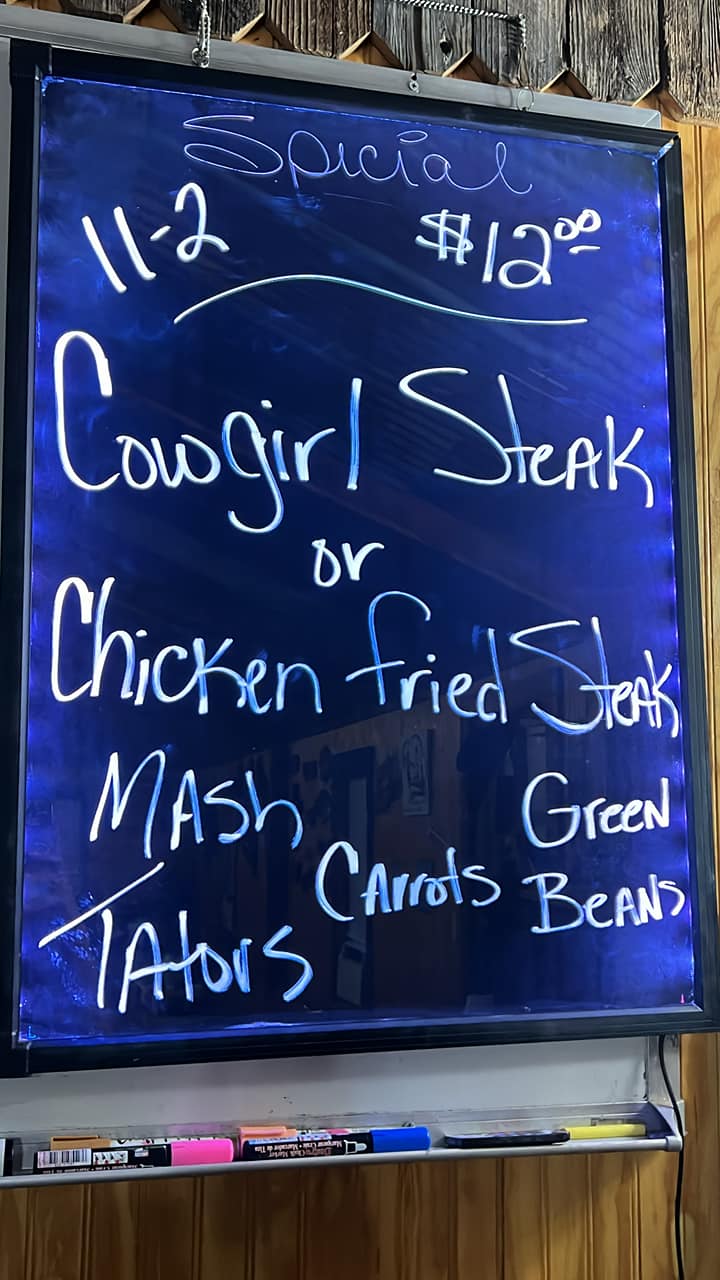 Spicial
11-2 $12.00
Cowgirl Steak
or
Chicken fried Steak
Mash
Tators
Carrots
Green
Beans